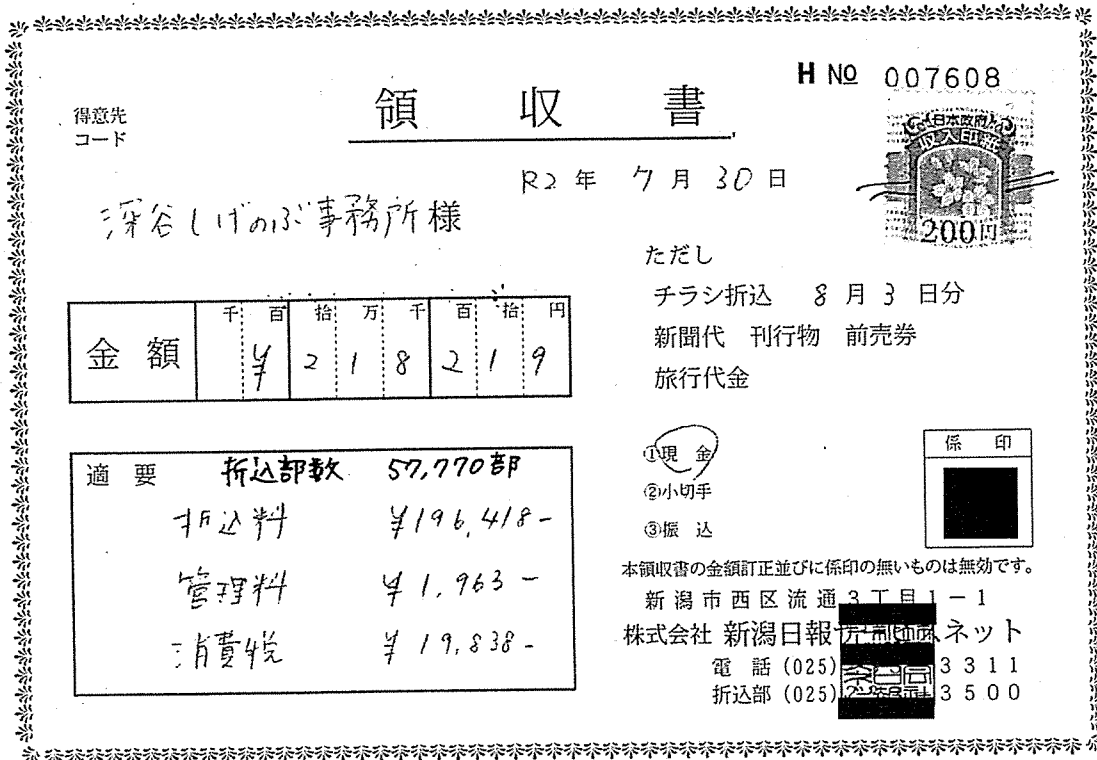 H No 007608
得意先
コード
領収書
日本政府
収入印紙
200円
R2年 7月30日
深谷しげのぶ事務所様
ただし
チラシ折込 8月3日分
新聞代 刊行物 前売券
旅行代金
金額 千百拾万千百拾円
¥218219
適要 折込部数 57,770部
折込料 ¥196,418-
管理料 ¥1,963-
消費税 ¥19,838-
①現金
②小切手
③振込
係印
本領収書の金額訂正並びに係印の無いものは無効です。
新潟市西区流通3丁目1-1
株式会社 新潟日報サービスネット
電話(025) 3311
折込部(025) 3500